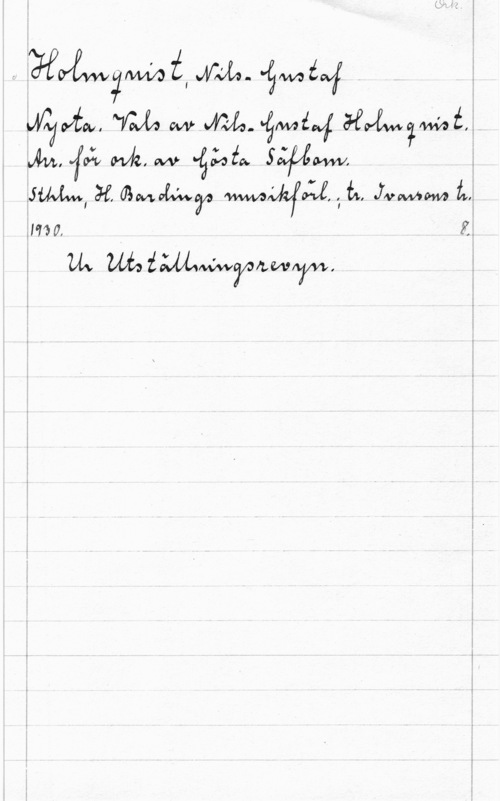 Ork.
Holmquist, Nils-Gustaf
Nyota. Vals av Nils-Gustaf Holmquist.
Arr. för ork. av Gösta Säfbom.
Sthlm, H. Bardings musikförl.; tr. Ivarsons tr.
1930. 8.
Ur Utställningsrevyn.